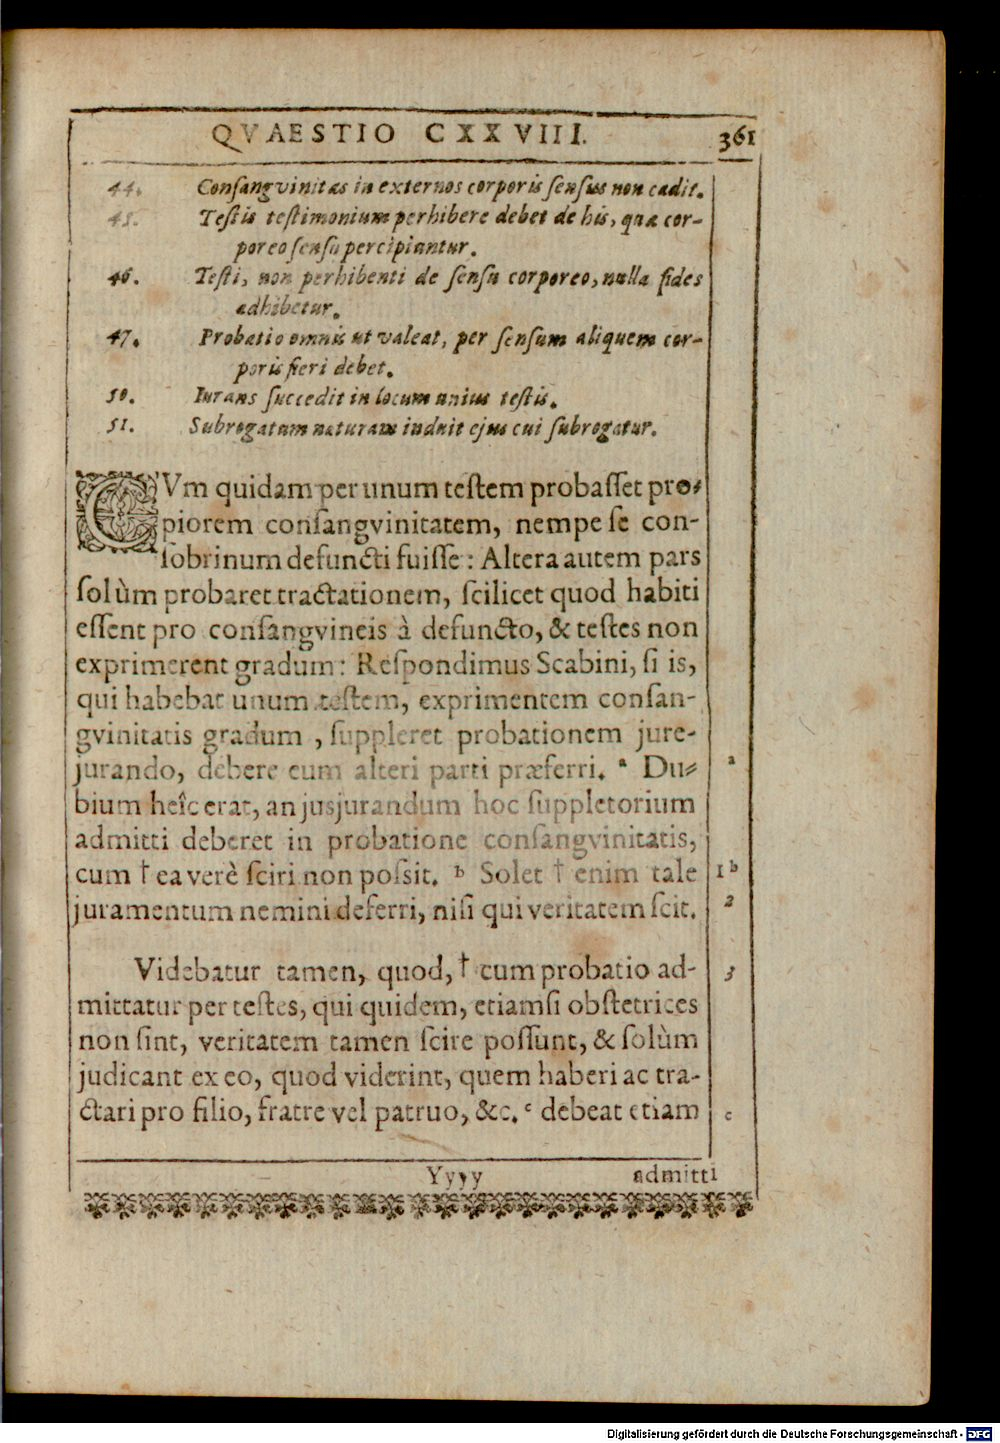 QVAESTIO CXXVIII. 361
44. Conſangvinitas in externos corporis ſenſus non cadit.
45. Teſtis teſtimonium perhibere debet de his, quæ cor-
poreo ſenſu percipiantur.
46. Teſti, non perhibenti de ſenſu corporeo, nulla fides
adhibetur.
47. Probatio omnis ut valeat, per ſenſum aliquem cor-
poris fieri debet.
50. Iurans ſuccedit in locum unius teſtis.
51. Subrogatum naturam induit ejus cui ſubrogatur.
CVm quidam per unum teſtem probaſſet pro-
piorem conſangvinitatem, nempe ſe con-
ſobrinum defuncti fuiſſe: Altera autem pars
ſolùm probaret tractationem, ſcilicet quod habiti
eſſent pro conſangvineis à defuncto, & teſtes non
exprimerent gradum: Reſpondimus Scabini, ſi is,
qui habebat unum teſtem, exprimentem conſan-
gvinitatis gradum, ſuppleret probationem jure-
jurando, debere eum alteri parti præferri. a Du- a
bium heîc erat, an jusjurandum hoc ſuppletorium
admitti deberet in probatione conſangvinitatis,
cum † ea verè ſciri non poſsit. b Solet † enim tale 1 b
juramentum nemini deferri, niſi qui veritatem ſcit. 2
Videbatur tamen, quod, † cum probatio ad- 3
mittatur per teſtes, qui quidem, etiamſi obſtetrices
non ſint, veritatem tamen ſcire poſſunt, & ſolùm
judicant ex eo, quod viderint, quem haberi ac tra-
ctari pro filio, fratre vel patruo, &c. c debeat etiam c
Yyyy admitti
Digitalisierung gefördert durch die Deutsche Forschungsgemeinschaft - DFG